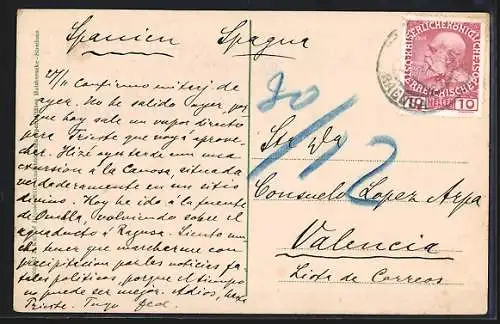 Spanien Spagna
27/11 Confirmo mi tarj. de
ayer. No he salido ayer, por
que hoy sale un vapor directo
para Trieste que voy á aprove-
char. Hizé ayer tarde una
excursión a la Canosa, situada
verdaderamente en un sitio
divino. Hoy he ido á la fuente
de Ombla, volviendo sobre el
aqueducto á Ragusa. Siento mu-
cho tener que marcharme con
precipitación por las noticias fa-
tales políticas, porque el tiempo
no puede ser mejor. Adios, hasta
Trieste. Tuyo
KAISERLICHE KÖNIGLICHE
ÖSTERREICHISCHE POST
HELLER 10
Srta Da
Consuelo Lopez Arpa
Valencia
Lista de Correos